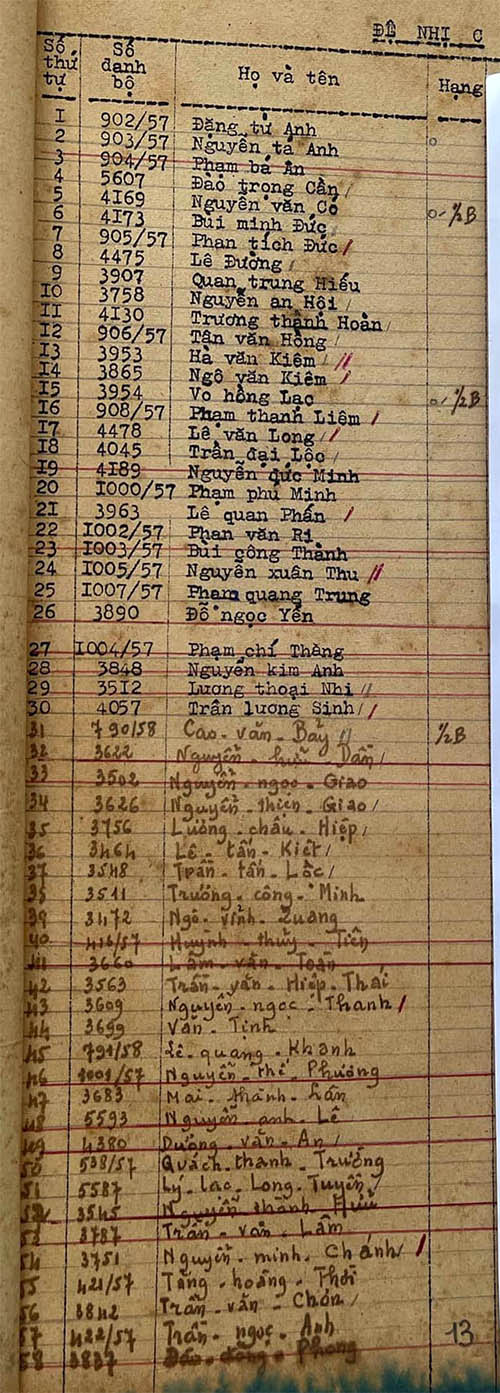 ĐỆ NHỊ C
Số thứ tự Số danh bộ Họ và tên Hạng
I 902/57 Đặng tử Anh
2 903/57 Nguyễn tá Anh o
3 904/57 Phạm bá Ân
4 5607 Đào trọng Cần /
5 4I69 Nguyễn văn Có
6 4I73 Bùi minh Đức o- ½B
7 905/57 Phan tích Đức /
8 4475 Lê Đường /
9 3907 Quan trung Hiếu
IO 3758 Nguyễn an Hội /
II 4I30 Trương thành Hoàn /
I2 906/57 Tân văn Hồng /
I3 3953 Hà văn Kiêm / //
I4 3865 Ngô văn Kiêm /
I5 3954 Vo hồng Lạc o- ½B
I6 908/57 Phạm thanh Liêm /
I7 4478 Lê văn Long / /
I8 4045 Trần đại Lộc /
I9 4I89 Nguyễn đức Minh
20 I000/57 Phạm phú Minh
2I 3963 Lê quan Phấn /
22 I002/57 Phan văn Ri
23 I003/57 Bùi công Thành
24 I005/57 Nguyễn xuân Thu //
25 I007/57 Phạm quang Trung
26 3890 Đỗ ngọc Yến
27 I004/57 Phạm chí Thàng
28 3848 Nguyễn kim Anh
29 35I2 Lương thoại Nhi //
30 4057 Trần lương Sinh / /
31 790/58 Cao - văn - Bảy // ½B
32 3622 Nguyễn - hữu - Dần /
33 3502 Nguyễn - ngọc - Giao
34 3626 Nguyễn - thiện - Giao /
35 3756 Lương - châu - Hiệp /
36 3464 Lê - tấn - Kiết /
37 3548 Trần - tấn - Lộc /
38 3511 Trương - công - Minh
39 3472 Ngô - vĩnh - Quang
40 416/57 Huỳnh - thủy - Tiên
41 3660 Lâm - văn - Toàn
42 3563 Trần - văn - Hiệp - Thái
43 3609 Nguyễn - ngọc - Thanh /
44 3699 Văn - Tịnh
45 791/58 Lê - quang - Khanh
46 1001/57 Nguyễn - thế - Phương
47 3683 Mai - thành - Lân
48 5593 Nguyễn - anh - Lê
49 4380 Dương - văn - An /
50 538/57 Quách - thanh - Trường
51 5587 Lý - lạc - Long - Tuyền /
52 3545 Nguyễn thành Hữu
53 3787 Trần - văn - Lâm
54 3751 Nguyễn - minh - Chánh / /
55 421/57 Tăng - hoàng - Thới
56 3842 Trần - văn - Chón /
57 422/57 Trần - ngọc - Anh
58 3837 Đào - đông - Phong
13